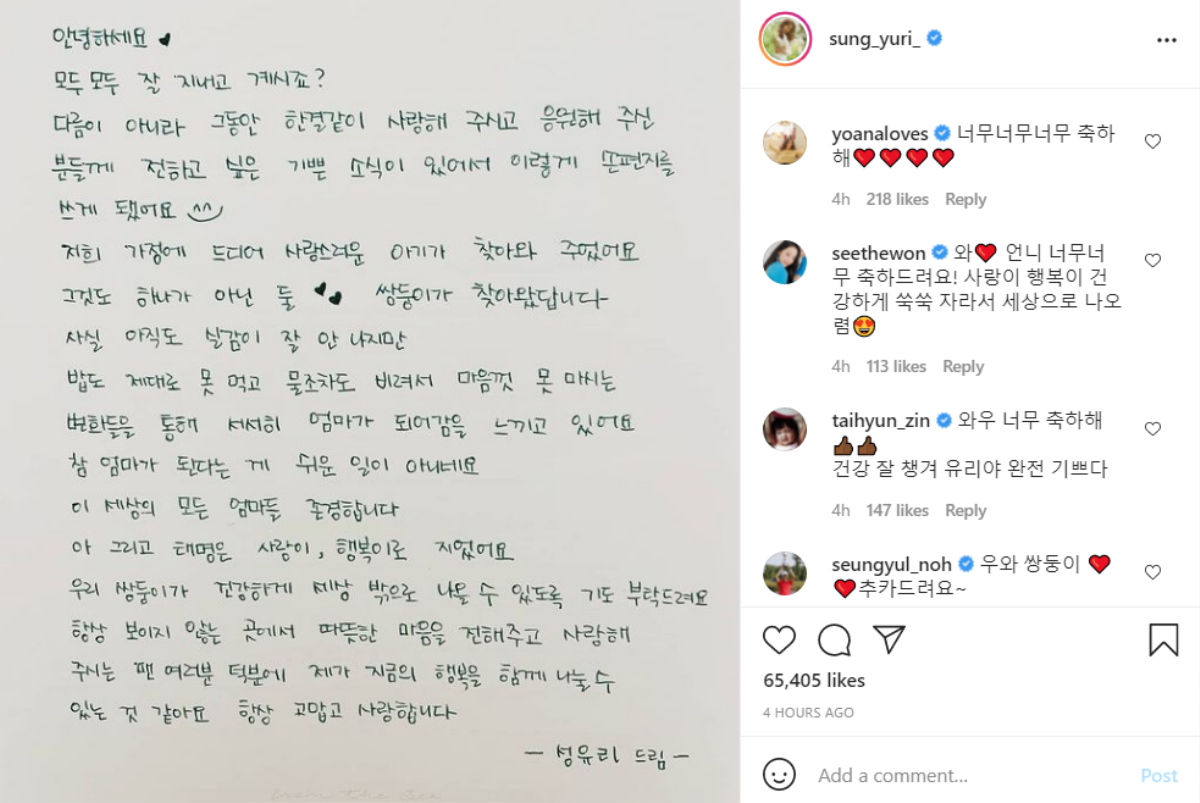 안녕하세요 ♥
모두모두 잘 지내고 계시죠?
다름이 아니라 그동안 한결같이 사랑해 주시고 응원해 주신
분들께 전하고 싶은 기쁜 소식이 있어서 이렇게 손편지를
쓰게 됐어요 ^^
저희 가정에 드디어 사랑스러운 아기가 찾아와 주었어요
그것도 하나가 아닌 둘 ♥♥ 쌍둥이가 찾아왔답니다
사실 아직도 실감이 잘 안 나지만
밥도 제대로 못 먹고 물조차도 비려서 마음껏 못 마시는
변화들을 통해 서서히 엄마가 되어감을 느끼고 있어요
참 엄마가 된다는 게 쉬운 일이 아니네요
이 세상의 모든 엄마들 존경합니다
아 그리고 태명은 사랑이, 행복이로 지었어요
우리 쌍둥이가 건강하게 세상 밖으로 나올 수 있도록 기도 부탁드려요
항상 보이지 않는 곳에서 따뜻한 마음을 전해주고 사랑해
주시는 팬 여러분 덕분에 제가 지금의 행복을 함께 나눌 수
있는 것 같아요 항상 고맙고 사랑합니다
- 성유리 드림 -
sung_yuri_
yoanaloves 너무너무너무 축하
해❤️❤️❤️❤️
4h 218 likes Reply
seethewon 와❤️ 언니 너무너
무 축하드려요! 사랑이 행복이 건
강하게 쑥쑥 자라서 세상으로 나오
렴😍
4h 113 likes Reply
taihyun_zin 와우 너무 축하해
👍🏾👍🏾
건강 잘 챙겨 유리야 완전 기쁘다
4h 147 likes Reply
seungyul_noh 우와 쌍둥이 ❤️
❤️추카드려요~
65,405 likes
4 HOURS AGO
Add a comment...
Post